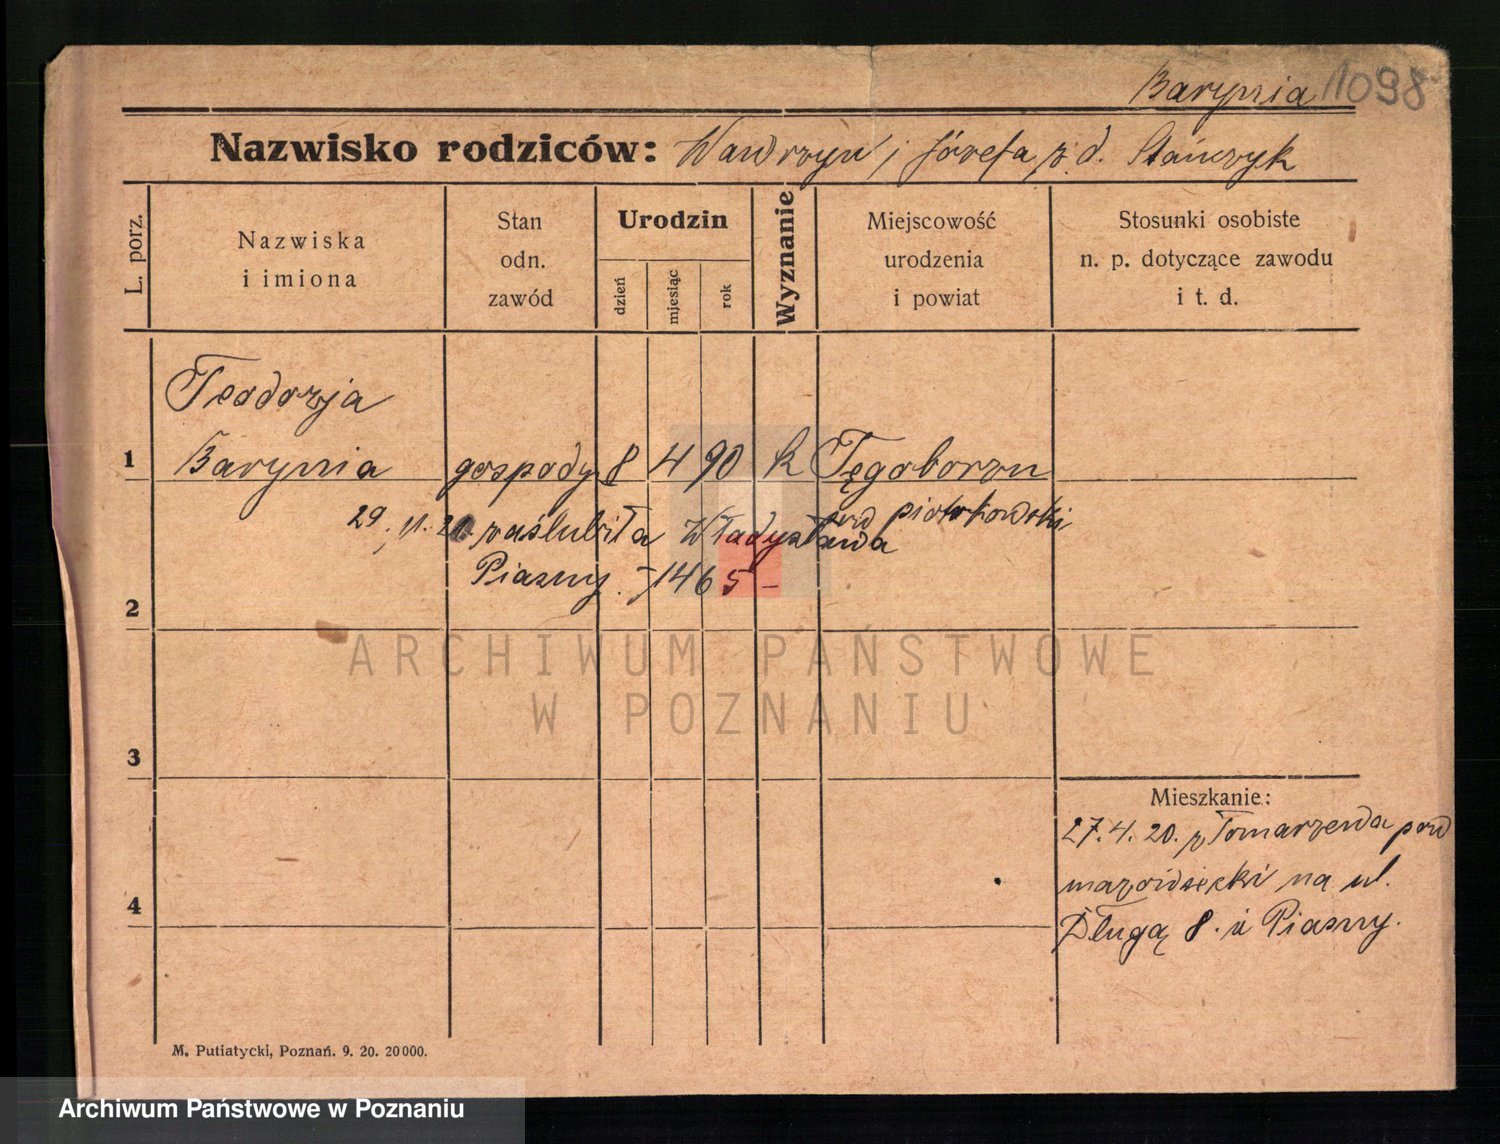 Barynia 1098
Nazwisko rodziców: Wawrzyn i Józefa z d. Stańczyk
L. porz.
Nazwiska
i imiona
Stan
odn.
zawód
Urodzin
dzień
miesiąc
rok
Wyznanie
Miejscowość
urodzenia
i powiat
Stosunki osobiste
n. p. dotyczące zawodu
i t. d.
Teodorja
1 Barynia gospody 8 4 90 k Tęgoborzu
pow piotrkowski
29. 11. 20. zaślubiła Władysława
Piaszny. 1465 –
2
ARCHIWUM PAŃSTWOWE
W POZNANIU
3
Mieszkanie:
27. 4. 20. z Tomarzewa pow
mazowiecki na ul.
4
Długą 8. u Piaszny.
M. Putiatycki, Poznań. 9. 20. 20000.
Archiwum Państwowe w Poznaniu